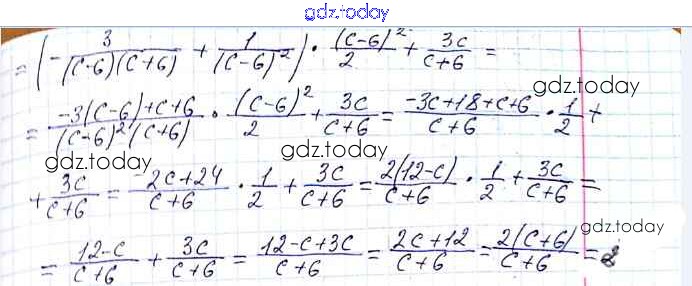 gdz.today
= (-3/((c-6)(c+6)) + 1/(c-6)²) · (c-6)²/2 + 3c/(c+6) =
gdz.today
= (-3(c-6)+c+6)/((c-6)²(c+6)) · (c-6)²/2 + 3c/(c+6) = (-3c+18+c+6)/(c+6) · 1/2 +
gdz.today gdz.today
+ 3c/(c+6) = (-2c+24)/(c+6) · 1/2 + 3c/(c+6) = 2(12-c)/(c+6) · 1/2 + 3c/(c+6) =
gdz.today
= (12-c)/(c+6) + 3c/(c+6) = (12-c+3c)/(c+6) = (2c+12)/(c+6) = 2(c+6)/(c+6) = 2